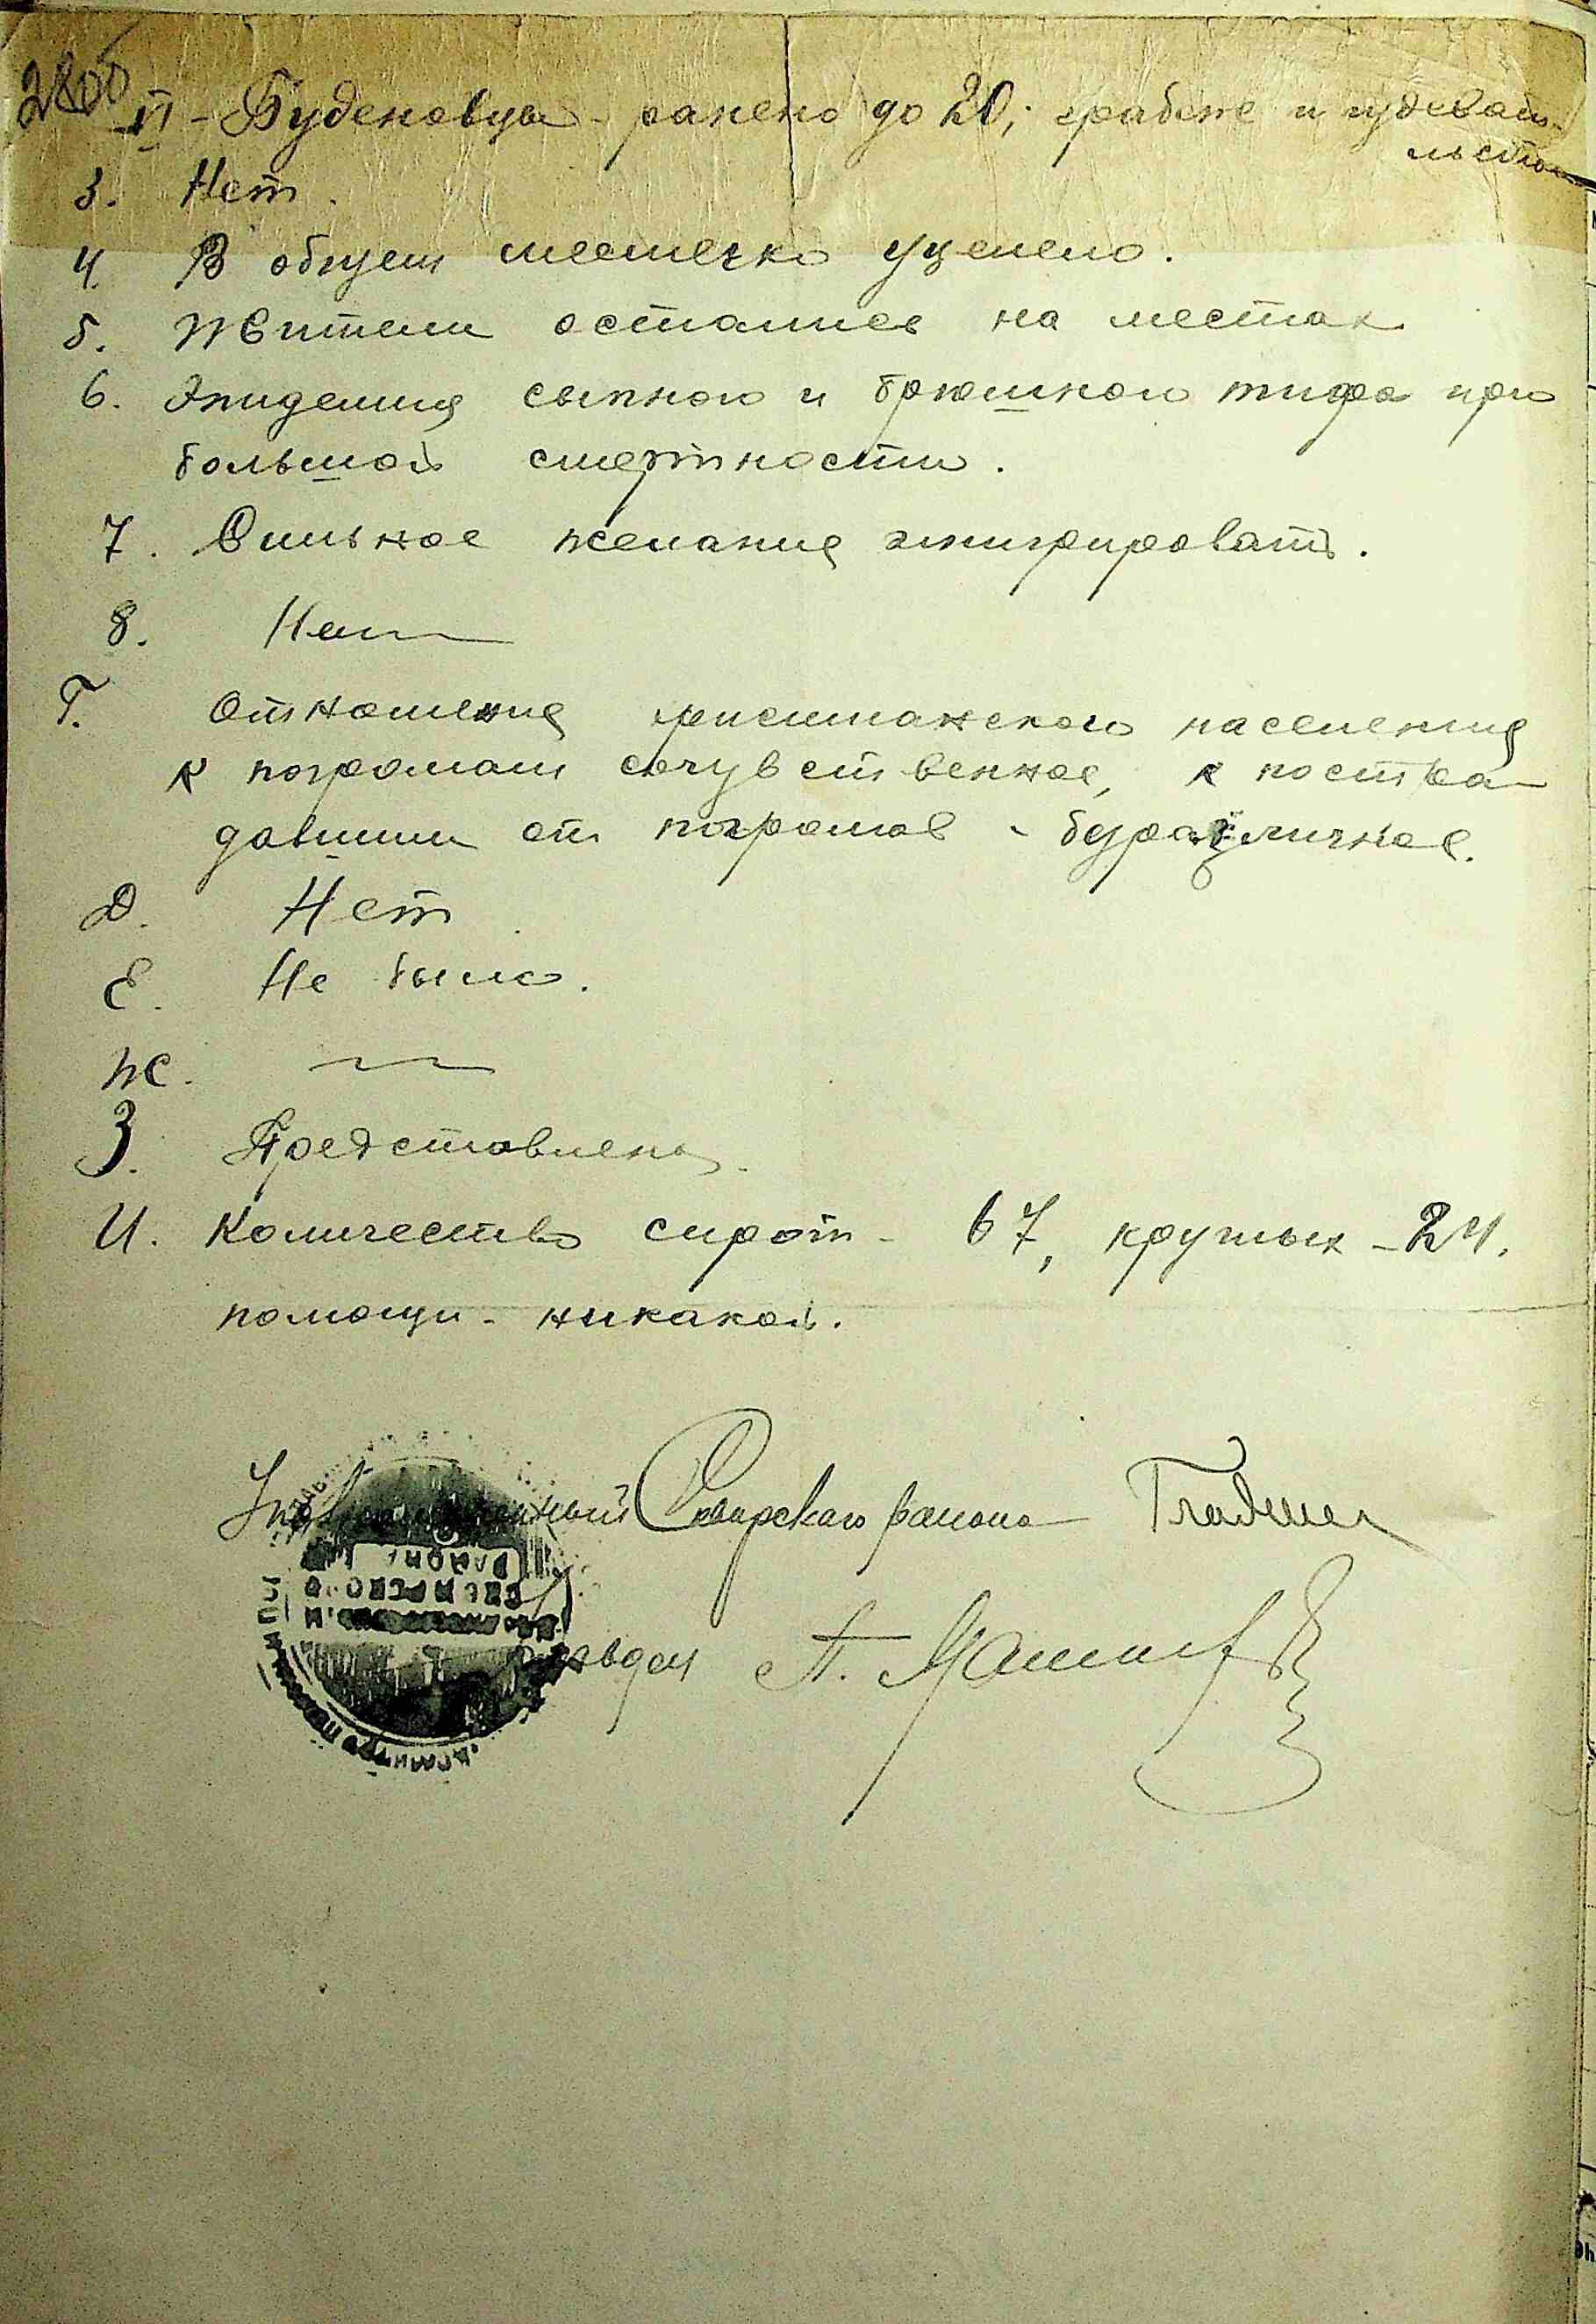 28об
VI - Буденовцы - ранено до 20; грабеж и издеват-
льства
3. Нет.
4. В общем местечко уцелело.
5. Жители остались на местах
6. Эпидемия сыпного и брюшного тифа при
большой смертности.
7. Сильное желание эмигрировать.
8. Нет
Г. Отношение христианского населения
к погромам сочувственное, к постра-
давшим от погромов - безразличное.
Д. Нет
Е. Не было.
Ж.
З. Представлено.
И. Количество сирот - 67, круглых - 24.
помощи - никакой.
Уполномоченный Сквирского района
РАЙОНА
СКВИРСКОГО
П.